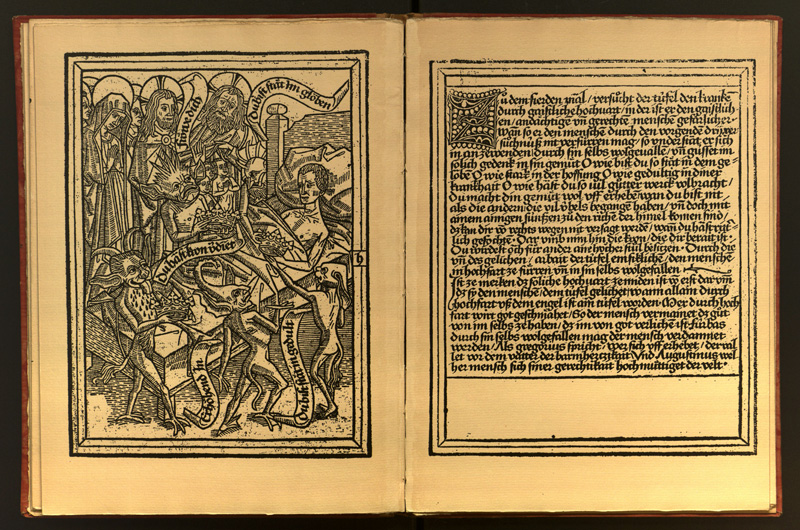 rům dich
du bist stät im gloƀen
Du hast kron v̄diēt
Du bist stārk in gedult
h
Zu dem fierden mal / versůcht der tüfel den kranckē
durch gaistliche hochuart / in der ist er den gaistlich
en / andächtigē vn̄ gerechtē menschē gefärlicher ·
wan so er den menschē durch den vorgende drÿ ver
sůchnüß nit verfürren mag · so vnderstāt er sich
in an zewenden / durch sin selbs wolgeuallē / vn̄ güsset im
solich gedenk in sin gemüt O wie bist du so stät in dem ge=
lobē O wie stark in der hoffūng O wie gedultig in diner
krankhait O wie hāst du so uil gůtter werck volbracht /
Du macht din gemüt wol vff erhebē wan du bist nit
als die andern / die vil v̈bels begangē haben / vn̄ doch mit
ainem ainigen sünfftzen zů den růhē der himel komen sind /
dz kan dir vō rechts wegen nit versagt werdē / wan̄ du hāst
lich gefochtē · Dar vmb nim hin die kron / die dir berait ist ·
Du würdest och für ander ain höher stůl besitzen · Durch die
vn̄ des gelichen / arbait der tüfel emsiklichē / den menschē
in hochfart ze fürren vn̄ in sin selbs wolgefallen
Ist ze merken dz soliche hochuart ze miden ist vō erst dar vm̄
dz sy den menschē / dem tüfel gelichet / wann allain durch
hochfart vß dem engel ist ain tüfel worden · So er durch hoch
fart wirt got geschmähet / So der mensch vermainet dz gůt
von im selbs ze haben / dz im von got verlichē ist für bas
durch sin selbs wolgefallen mag der mensch verdamnet
werden / Als gregorius spricht / wer sich vff erhebet / der wal
let vor dem vatter der barmhertzikait Vnd Augustinus wel
her mensch sich siner gerechtikait hochmüttiget der velt ·